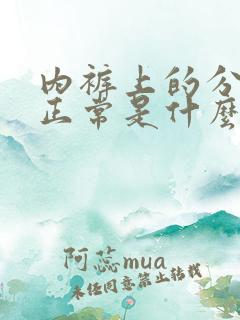 内裤上的分
正常是什麼
阿蕊mua
未经同意禁止转载